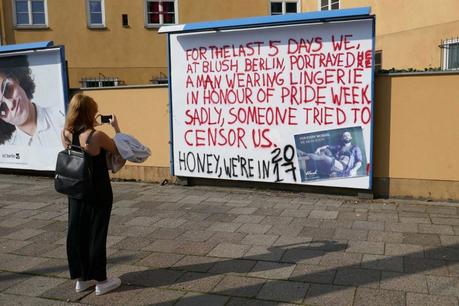 FOR THE LAST 5 DAYS WE,
AT BLUSH BERLIN, PORTRAYED
A MAN WEARING LINGERIE
IN HONOUR OF PRIDE WEEK
SADLY, SOMEONE TRIED TO
CENSOR US.
HONEY, WE'RE IN 2017